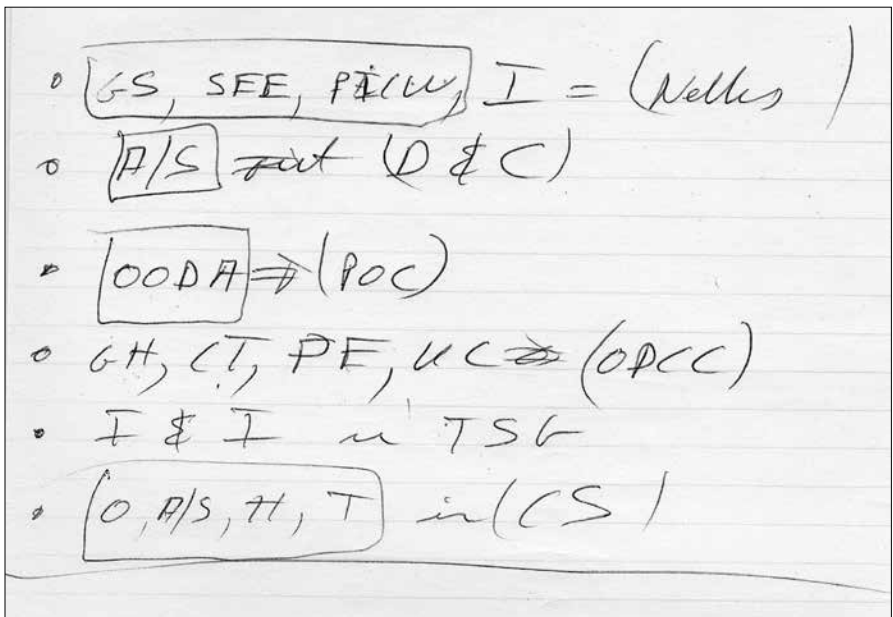 • GS, SEE, I = (Nellis)
• A/S (D & C)
• OODA ⇒ (POC)
• GH, CT, PE, UC ⇒ (ODCC)
• I & I in TSG
• O, A/S, H, T in (CS)